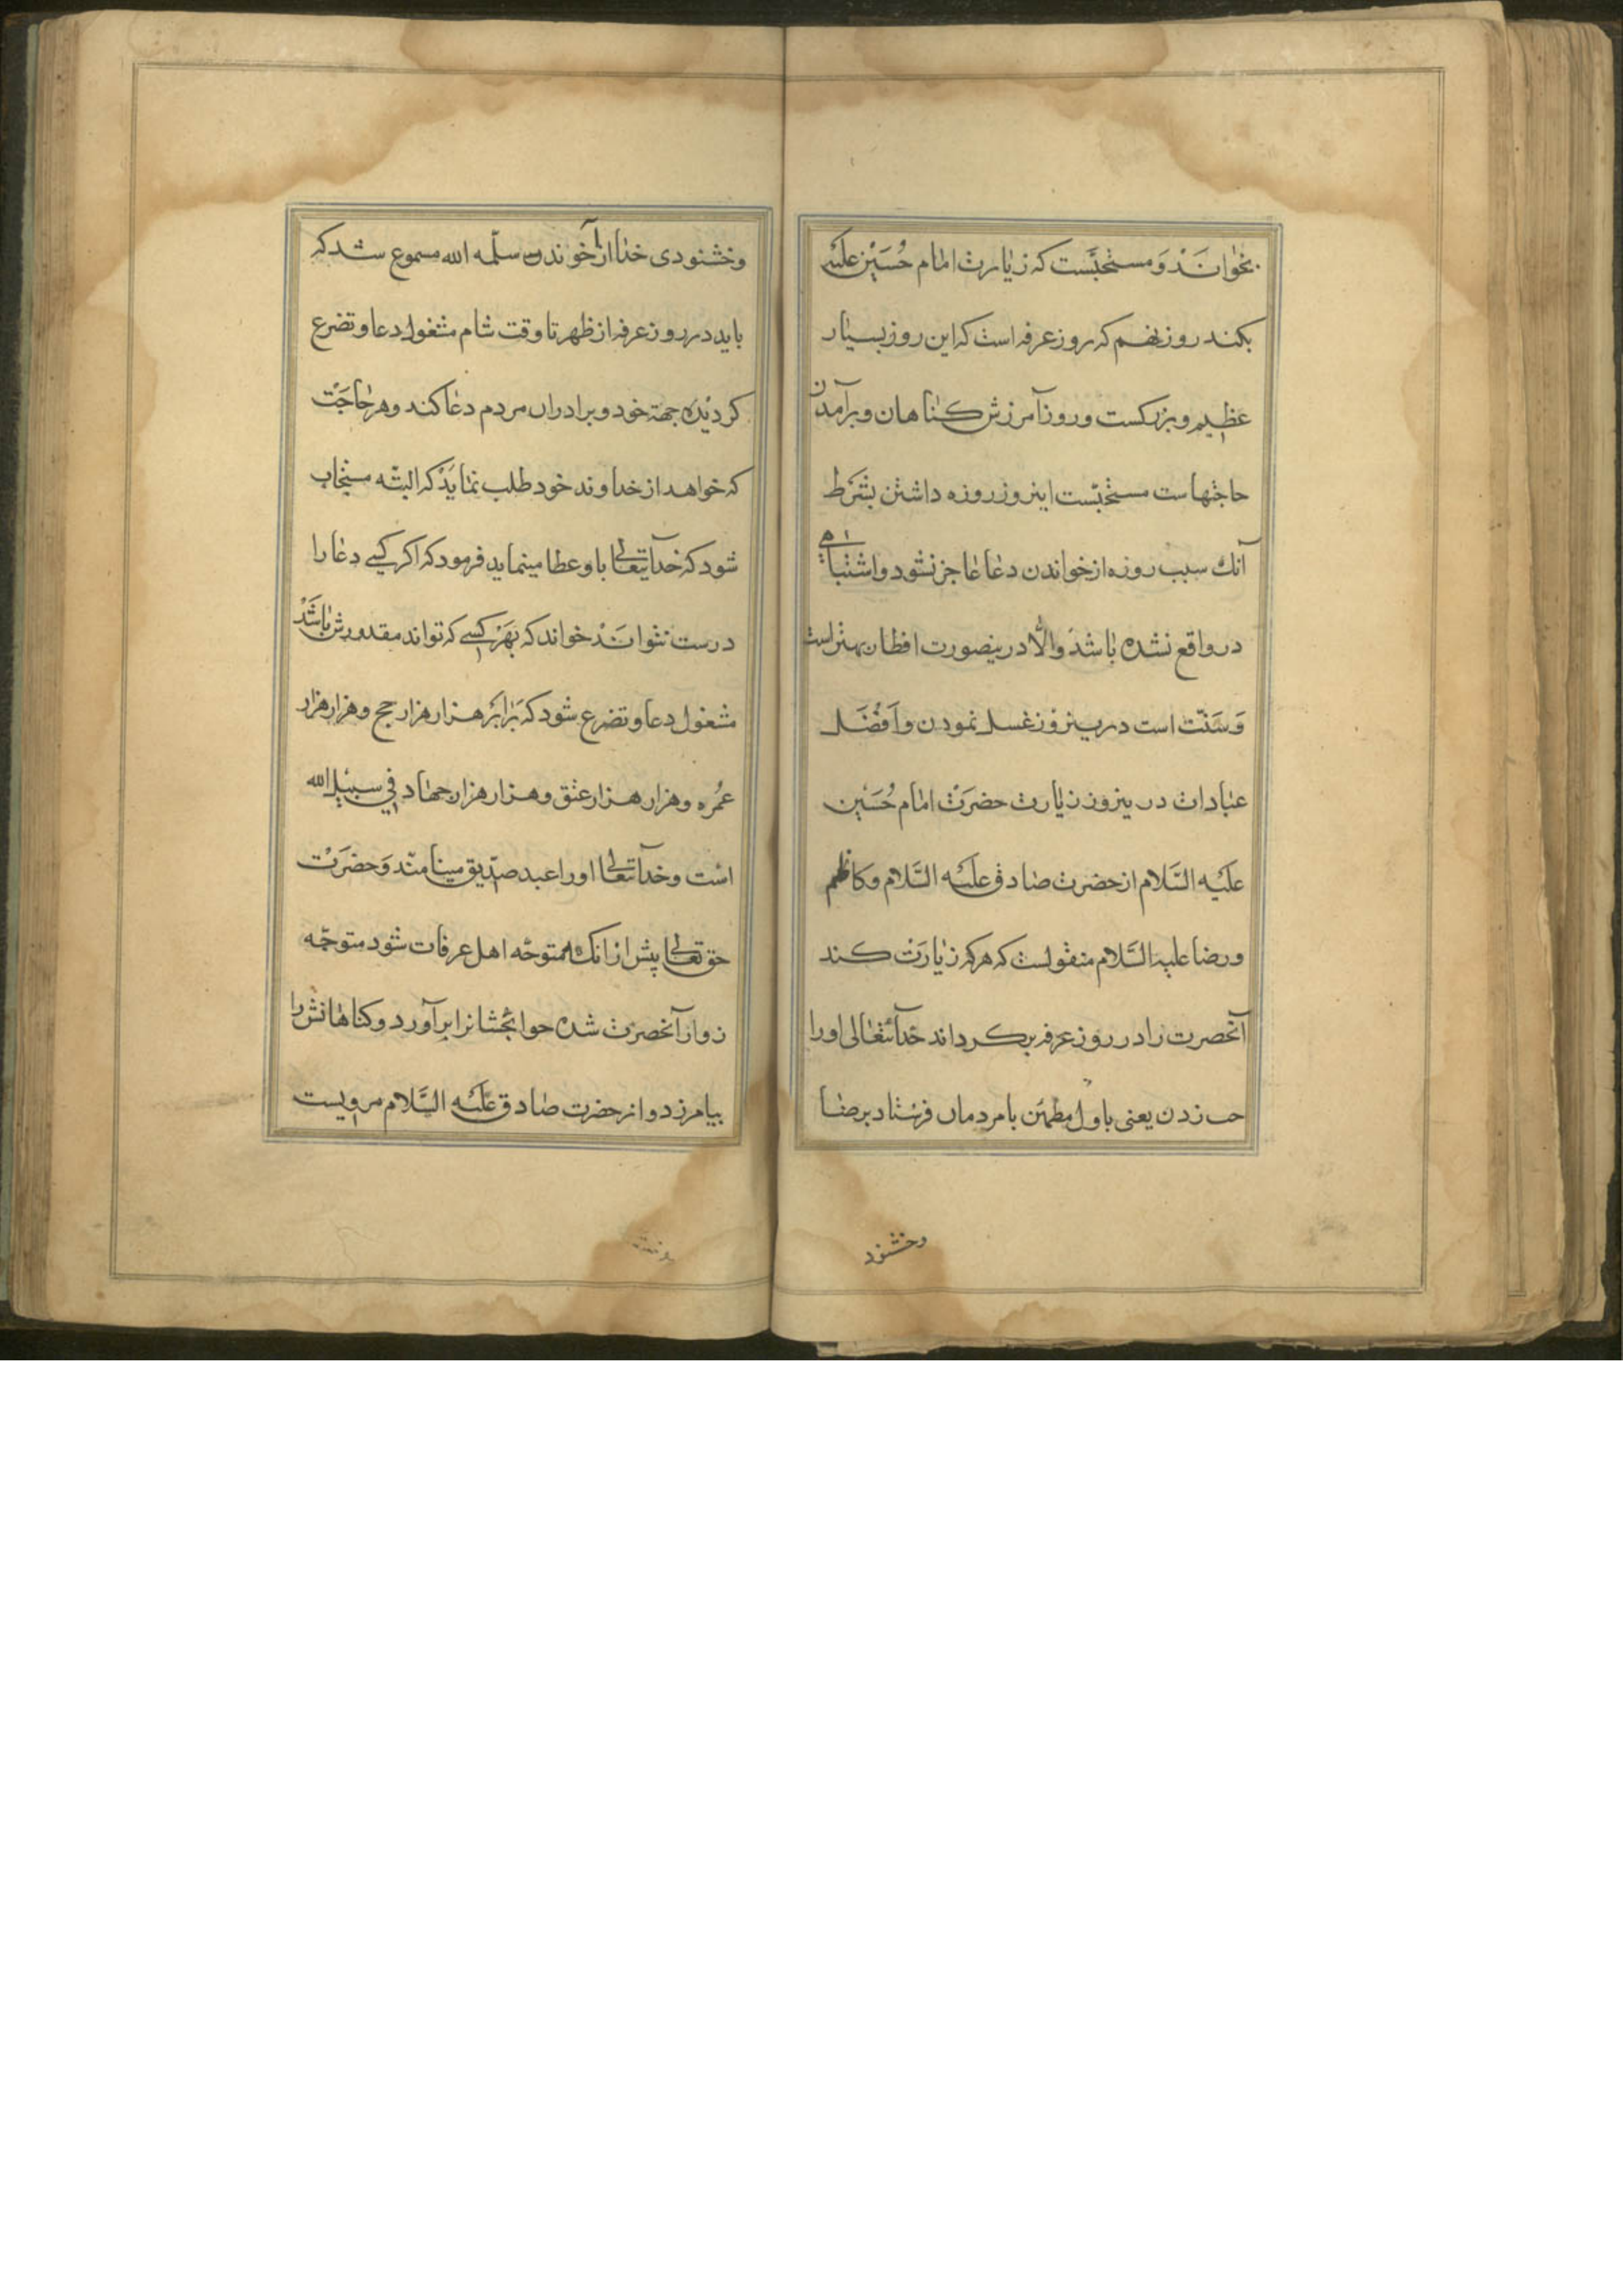 بخوانَنْد وَ مستحبَّست که زیارت امام حُسَیْن علیه
بکند روز نهم که روز عرفه است که این روز بسیار
عظیم و بزرکست و روز آمرزش کناهان و برآمدن
حاجتهاست مستحبّست اینروز روزه داشتن بشَرط
آنك سبب روزه از خواندن دعا عاجز نشود و اشتباهی
در واقع نشده باشد وَالّا درینصورت افطار بهتر است
وَ سَنّت است درینروز غسل نمودن و اَفْضَل
عبادات درینروز زیارت حضرَت امام حُسَیْن
عَلیْه السَّلام از حضرت صادق علیْه السَّلام و کاظم
و رضا علیه السَّلام منقولست که هرکه زیارَت کند
آنحضرت را در روز عرفه برکرداند خدآیتعالی او را
زدن یعنی باول مطمئن بامردمان فرستاد برضا
وخشنود
وخشنودی خدا از آخوند سلّمه الله مسموع شد که
باید در روز عرفه از ظهر تا وقت شام مشغول دعا و تضرع
کردیْده جهة خود و برادران مردم دعا کند و هر حاجَتْ
که خواهد از خداوند خود طلب نمایَدْ که البتّه مستجاب
شود که خدآیتعالی باو عطا مینماید فرمود که اکر کسی دعا را
درست نتوانَدْ خواند که بهَرْ کسی که تواند مقدورش باشَدْ
مشغول دعا و تضرع شود که بَرابَر هزار هزار حج و هزار هزار
عُمره و هزار هزار عتق و هزار هزار جهاد في سبیْل الله
است و خدآیتعالی او را عبد صدّیق مینامند وَ حضرَتْ
حق تعالی پیش از انك متوجّه اهل عرفات شود متوجّه
زوار آنحضرت شده حوائجشانرا برآورد و کناهانش را
بیامرزد و از حضرت صادق علیْه السَّلام مرویست